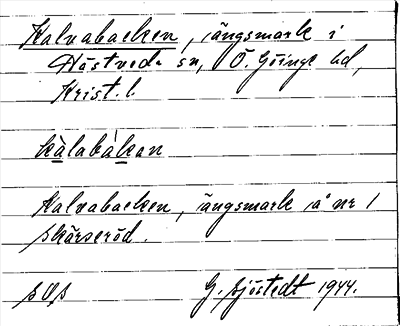 Kalvabacken, ängsmark i
Hästveda sn, Ö. Göinge hd,
Krist. l
kàlabàkan
Kalvabacken, ängsmark å nr 1
Skärseröd.
G. Sjöstedt 1944.